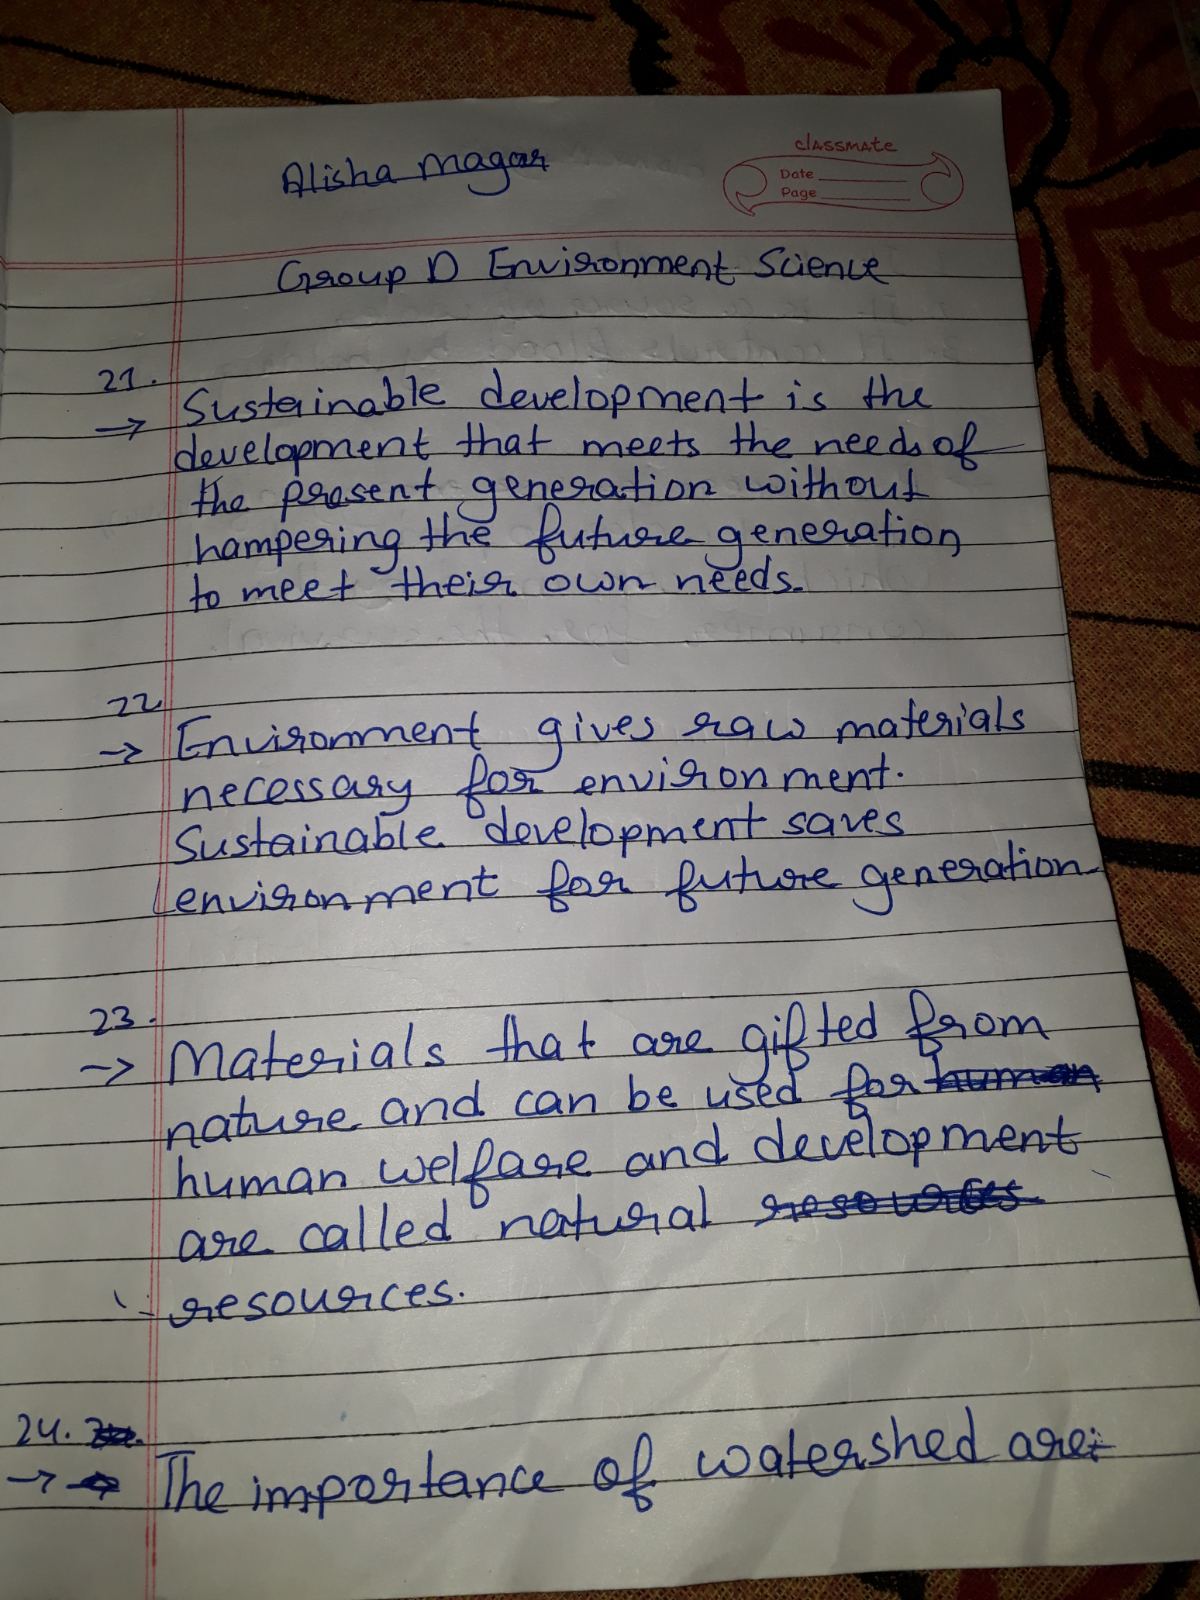 Alisha Magar
classmate
Date
Page
Group D Environment Science
21.
→ Sustainable development is the
development that meets the needs of
the present generation without
hampering the future generation
to meet their own needs.
22
→ Environment gives raw materials
necessary for environment.
Sustainable development saves
environment for future generation
23.
→ Materials that are gifted from
nature and can be used for human
human welfare and development
are called natural resources
resources.
24.
→ The importance of watershed are: